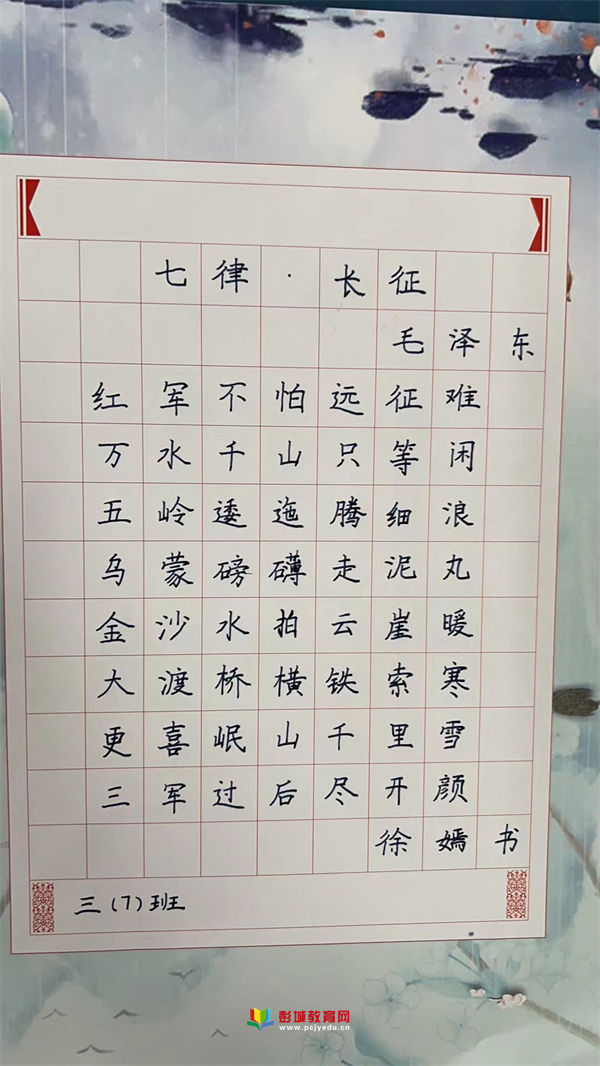 七律·长征
毛泽东
红军不怕远征难
万水千山只等闲
五岭逶迤腾细浪
乌蒙磅礴走泥丸
金沙水拍云崖暖
大渡桥横铁索寒
更喜岷山千里雪
三军过后尽开颜
徐嫣书
三(7)班
彭城教育网
www.pcjyedu.cn